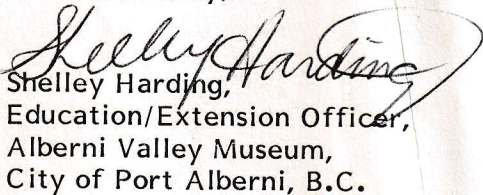 Shelley Harding
Shelley Harding,
Education/Extension Officer,
Alberni Valley Museum,
City of Port Alberni, B.C.